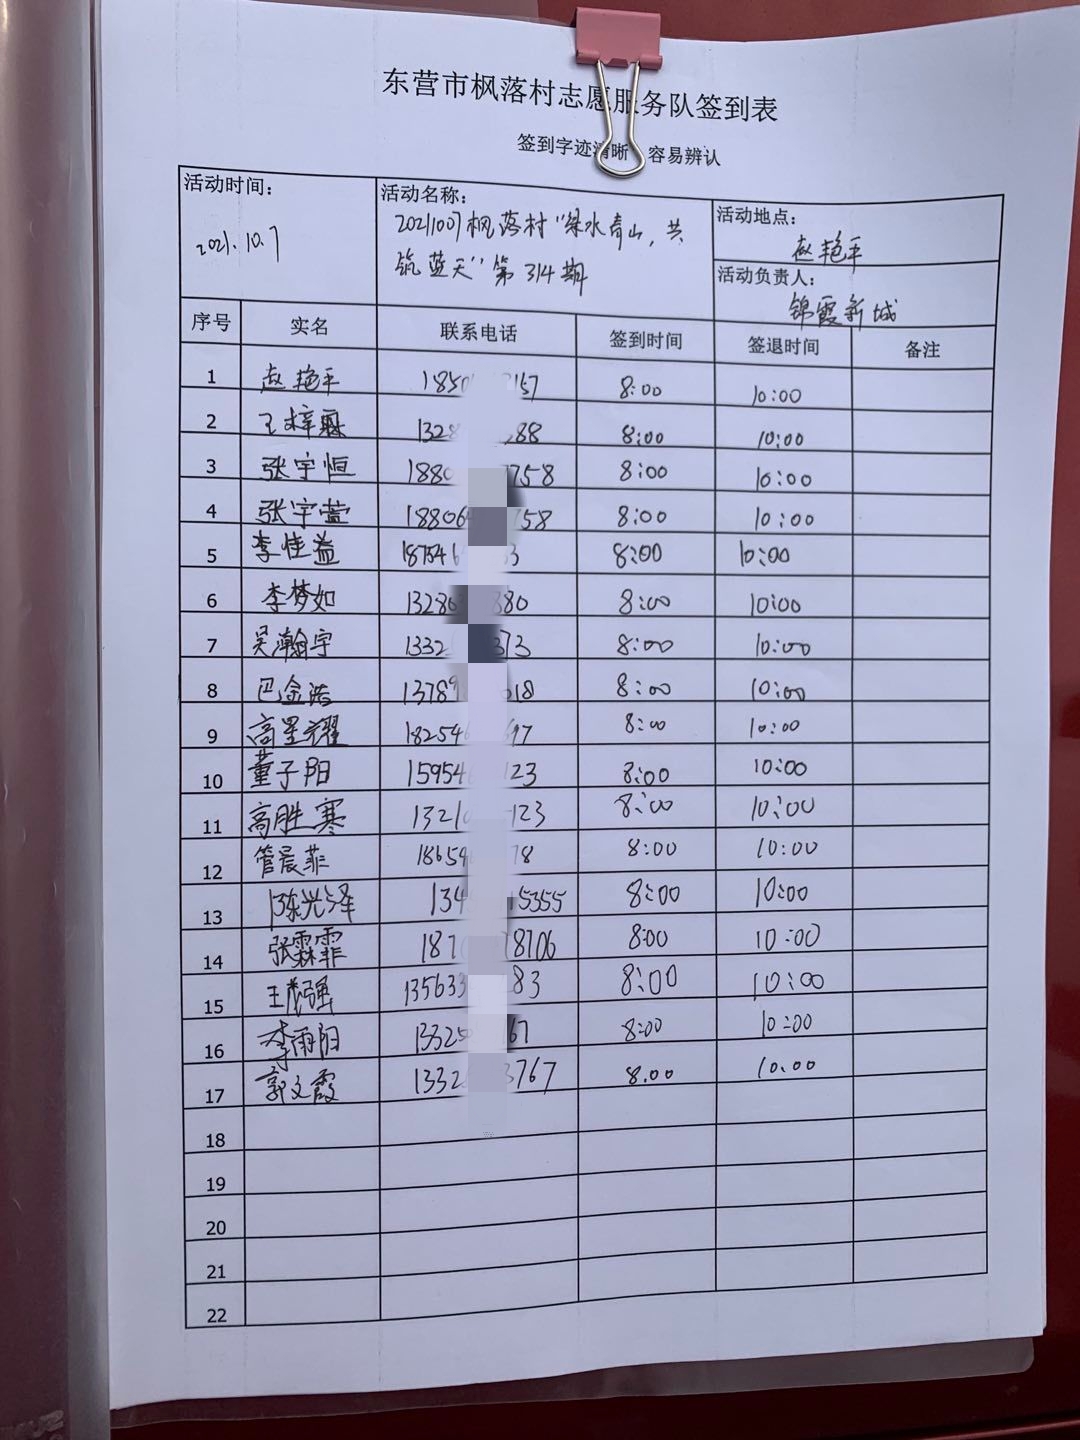 东营市枫落村志愿服务队签到表
签到字迹清晰 容易辨认
活动时间：
2021.10.7
活动名称：
20211007枫落村“绿水青山，共
筑蓝天”第314期
活动地点：
赵艳平
活动负责人：
锦霞新城
序号 实名 联系电话 签到时间 签退时间 备注
1 赵艳平 1850 157 8:00 10:00
2 王梓 132 88 8:00 10:00
3 张宇恒 1880 758 8:00 10:00
4 张宇萱 18806 758 8:00 10:00
5 李佳益 187546 3 8:00 10:00
6 李梦如 1328 880 8:00 10:00
7 吴瀚宇 1332 373 8:00 10:00
8 巴金浩 1378 018 8:00 10:00
9 高星耀 18254 97 8:00 10:00
10 董子阳 15954 123 8:00 10:00
11 高胜寒 1321 123 8:00 10:00
12 管晨菲 18654 78 8:00 10:00
13 陈光泽 134 5355 8:00 10:00
14 张霖霏 187 8706 8:00 10:00
15 王茂强 135633 83 8:00 10:00
16 李雨阳 13325 67 8:00 10:00
17 郭文霞 1332 3767 8.00 10.00
18
19
20
21
22